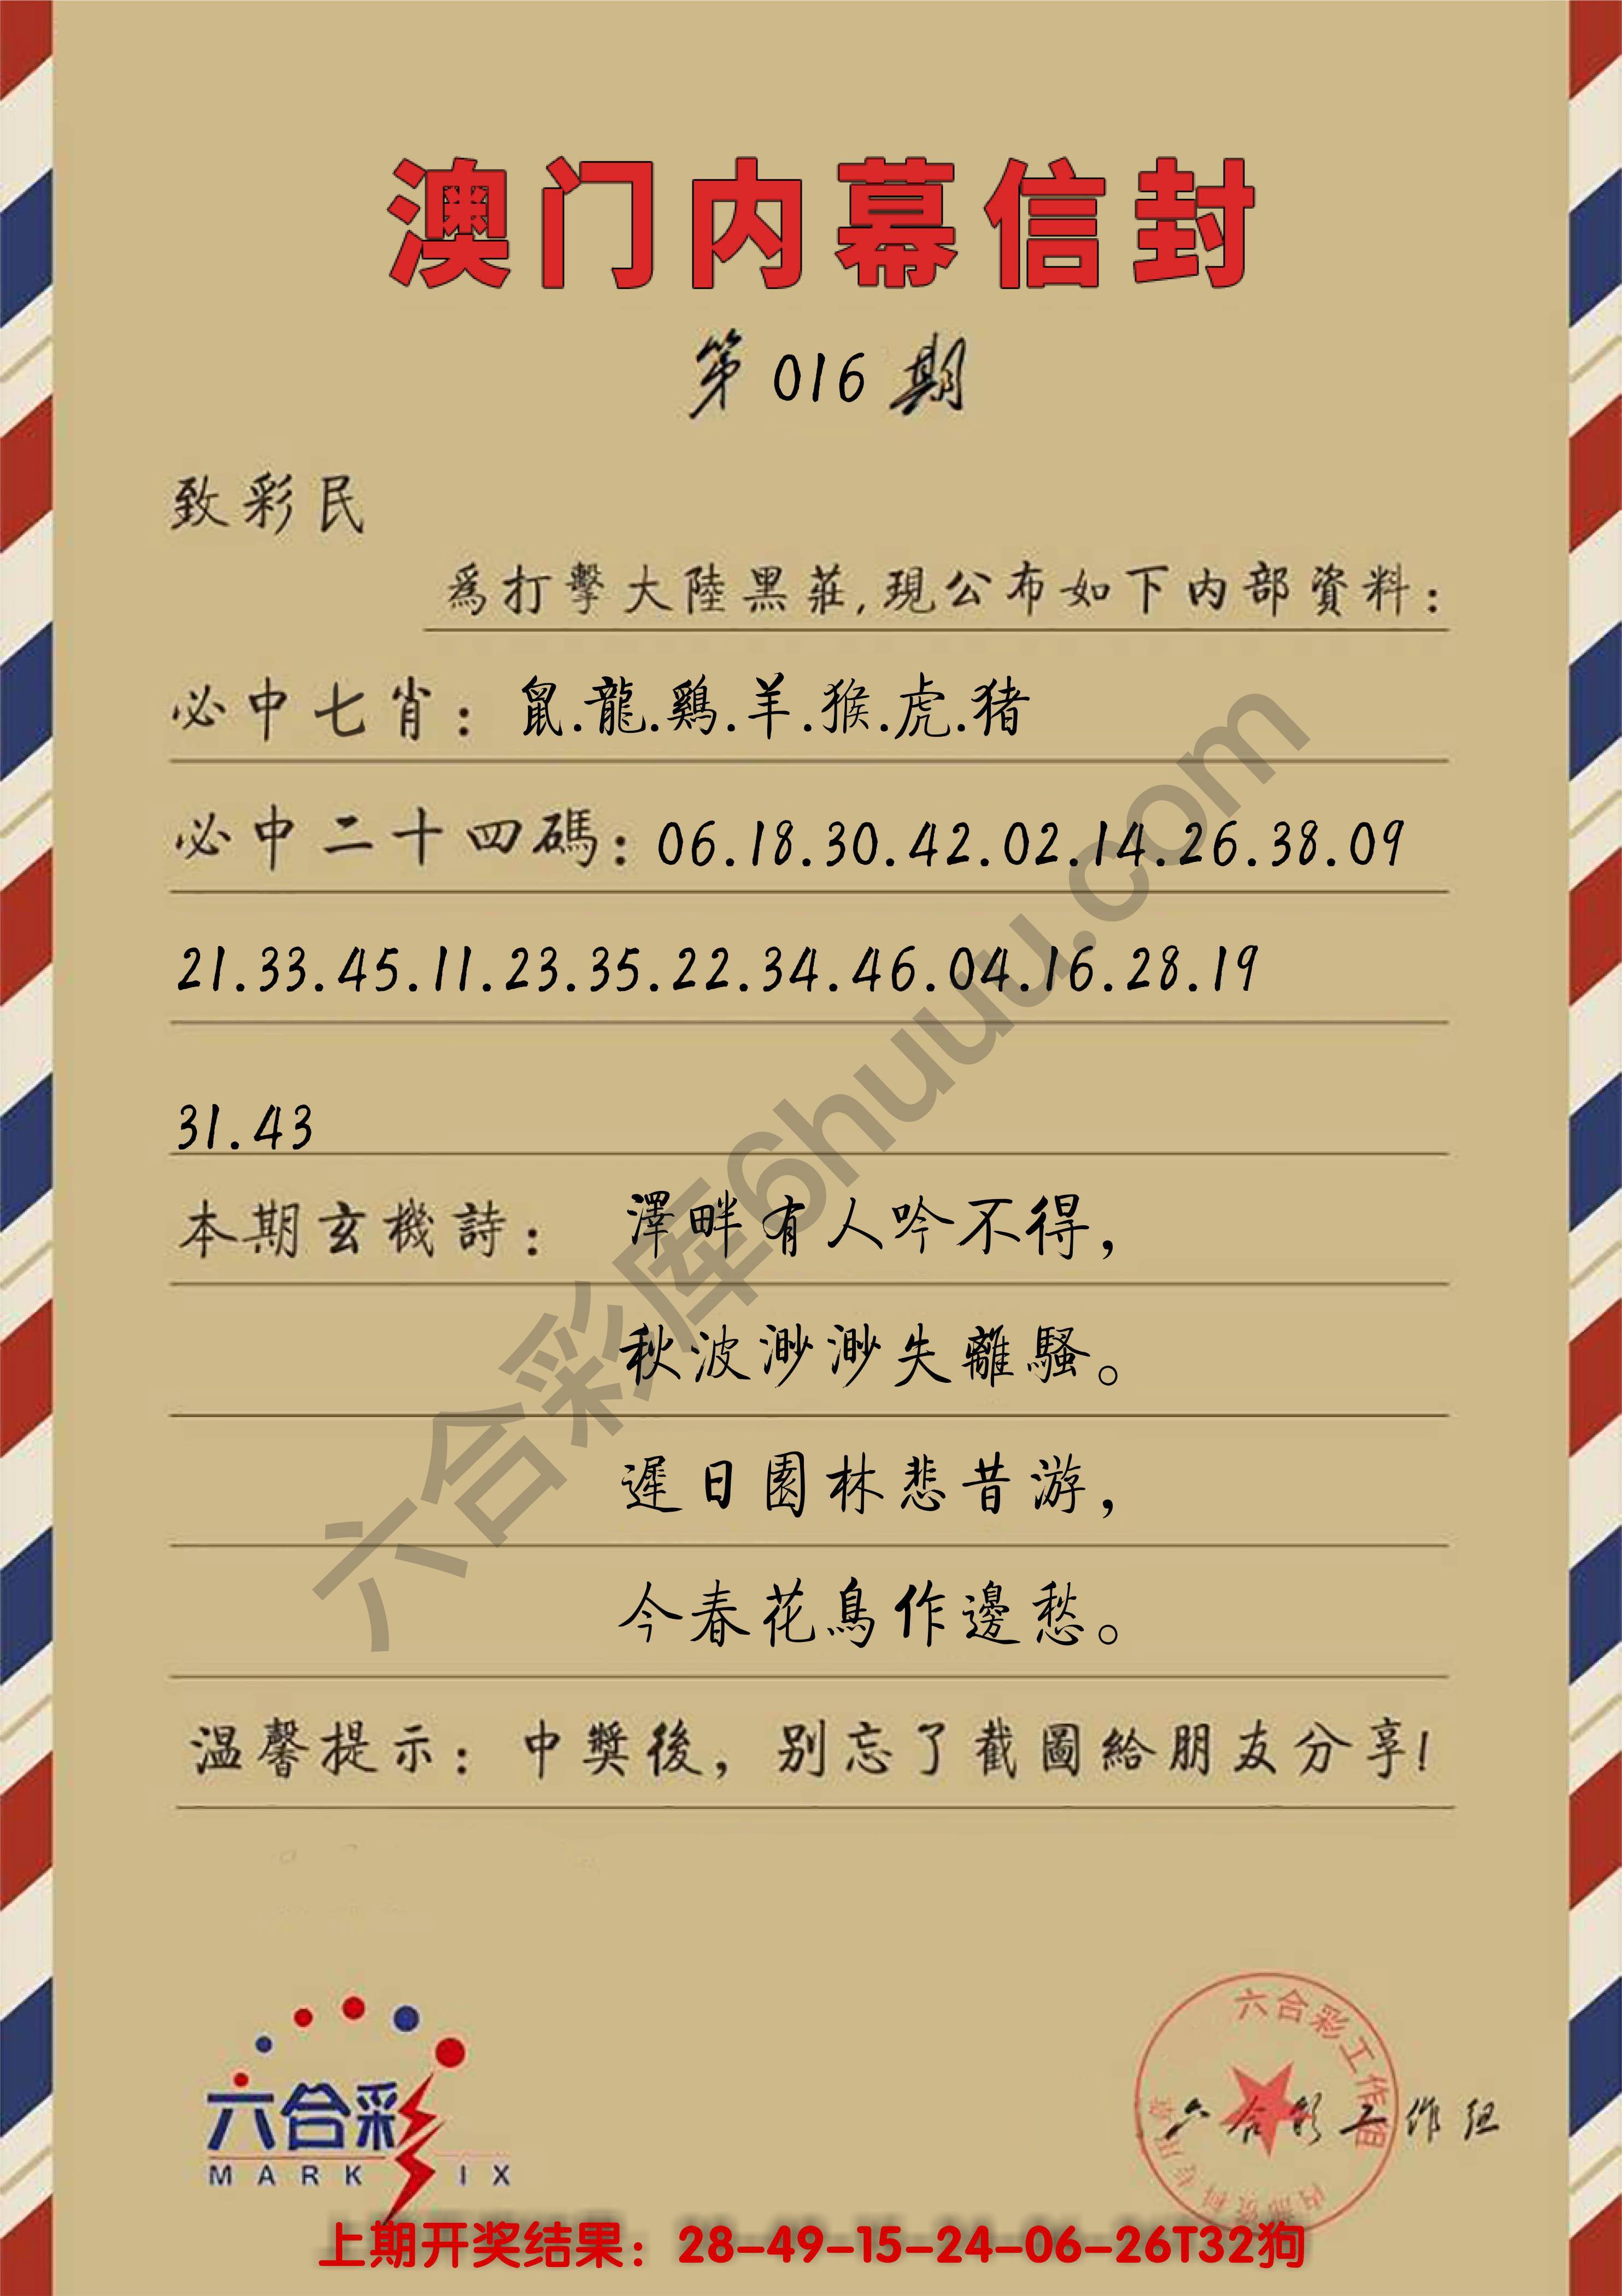 澳门内幕信封
第 016 期
致彩民
爲打擊大陸黑莊,現公布如下内部資料:
必中七肖: 鼠.龍.鷄.羊.猴.虎.猪
必中二十四碼: 06.18.30.42.02.14.26.38.09
21.33.45.11.23.35.22.34.46.04.16.28.19
31.43
本期玄機詩: 澤畔有人吟不得,
秋波渺渺失離騷。
遲日園林悲昔游,
今春花鳥作邊愁。
温馨提示: 中獎後, 别忘了截圖給朋友分享!
六合彩库6huuu.com
六合彩
MARK IX
六合彩工作组
六合彩工作组
上期开奖结果: 28-49-15-24-06-26T32狗